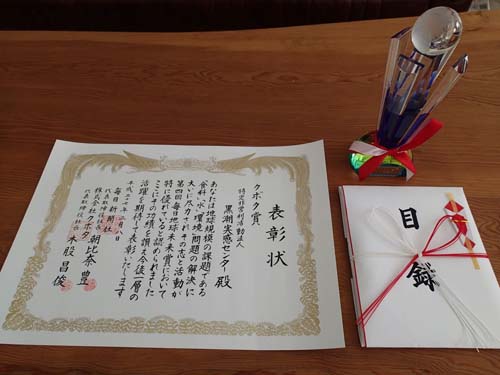 表彰状
クボタ賞
特定非営利活動法人
黒潮実感センター殿
あなたは地球規模の課題である
食料・水・環境問題の解決に
大いに尽力されその志と活動が
第四回毎日地球未来賞において
特に優れていると認められました
ここにその功績を讃え今後一層の
活躍を期待して表彰いたします
毎日新聞社
代表取締役社長 朝比奈 豊
株式会社クボタ
代表取締役社長 木股 昌俊
目録